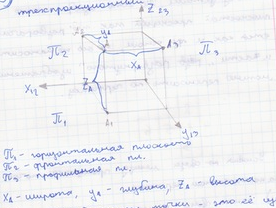 трехпроекционный
Z23
A2
yA
A3
П2
П3
XA
ZA
X12
П1
A1
y13
П1 - горизонтальная плоскость
П2 - фронтальная пл.
П3 - профильная пл.
XA - широта, yA - глубина, ZA - высота
точки - это её